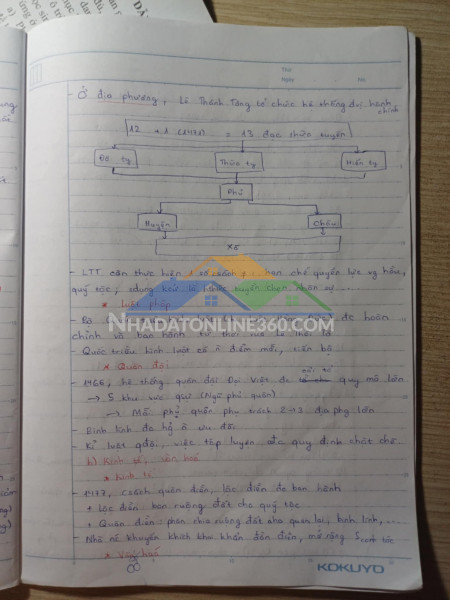 Thứ
Ngày
No
- Ở địa phương, Lê Thánh Tông tổ chức hệ thống đvị hành chính
12 + 1 (1471) = 13 đạo thừa tuyên
Đô ty
Thừa ty
Hiến ty
Phủ
Huyện
Châu
Xã
- LTT còn thực hiện 1 số csách : hạn chế quyền lực vg hầu,
quý tộc,
* Luật pháp
NHADATONLINE360.COM
chỉnh và ban hành từ thời vua Lê Thái Tổ
- Quốc triều hình luật có n điểm mới, tiến bộ
* Quân đội
- 1466, hệ thống quân đội Đại Việt đc quy mô lớn
→ 5 khu vực qsự (Ngũ phủ quân)
→ Mỗi phủ quân phụ trách 2→3 địa phg lớn
- Binh lính đc hg n ưu đãi
- Kỉ luật qđội, việc tập luyện đc quy định chặt chẽ
b) Kinh tế, văn hoá
* Kinh tế
- 1477, csách quân điền, lộc điền đc ban hành
+ Lộc điền: ban ruộng đất cho quý tộc
+ Quân điền: phân chia ruộng đất cho quan lại, binh lính,....
- Nhà nc khuyến khích khai khẩn đồn điền, mở rộng S canh tác
* Văn hoá
KOKUYO